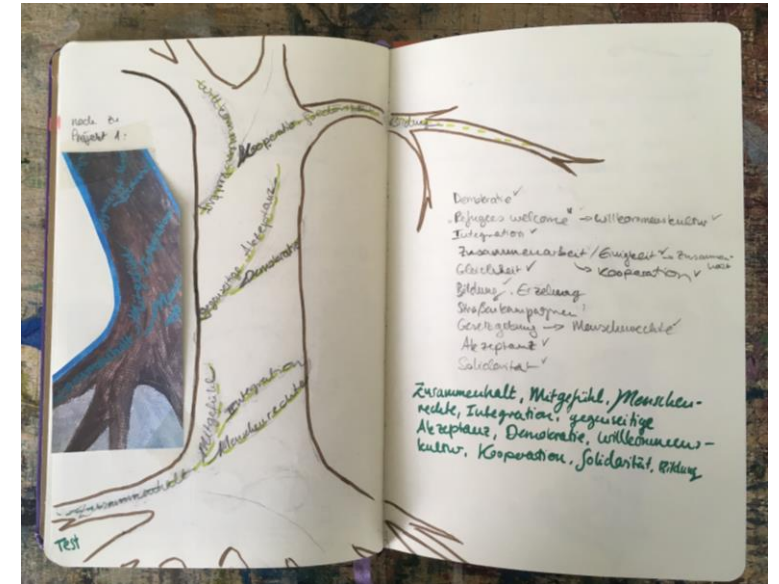 noch zu
Projekt 1:
Willkommenskultur
Kooperation
Bildung
gegenseitige Akzeptanz
Demokratie
Mitgefühl
Integration
Menschenrechte
Zusammenhalt
Test
Demokratie ✓
"Refugees welcome" → Willkommenskultur ✓
Integration ✓
Zusammenarbeit / Einigkeit ✓ → Zusammenhalt
Gleichheit ✓ → Kooperation ✓
Bildung ✓, Erziehung
Straßenkampagnen
Gesetzgebung → Menschenrechte ✓
Akzeptanz ✓
Solidarität ✓
Zusammenhalt, Mitgefühl, Menschen-
rechte, Integration, gegenseitige
Akzeptanz, Demokratie, Willkommens-
kultur, Kooperation, Solidarität, Bildung